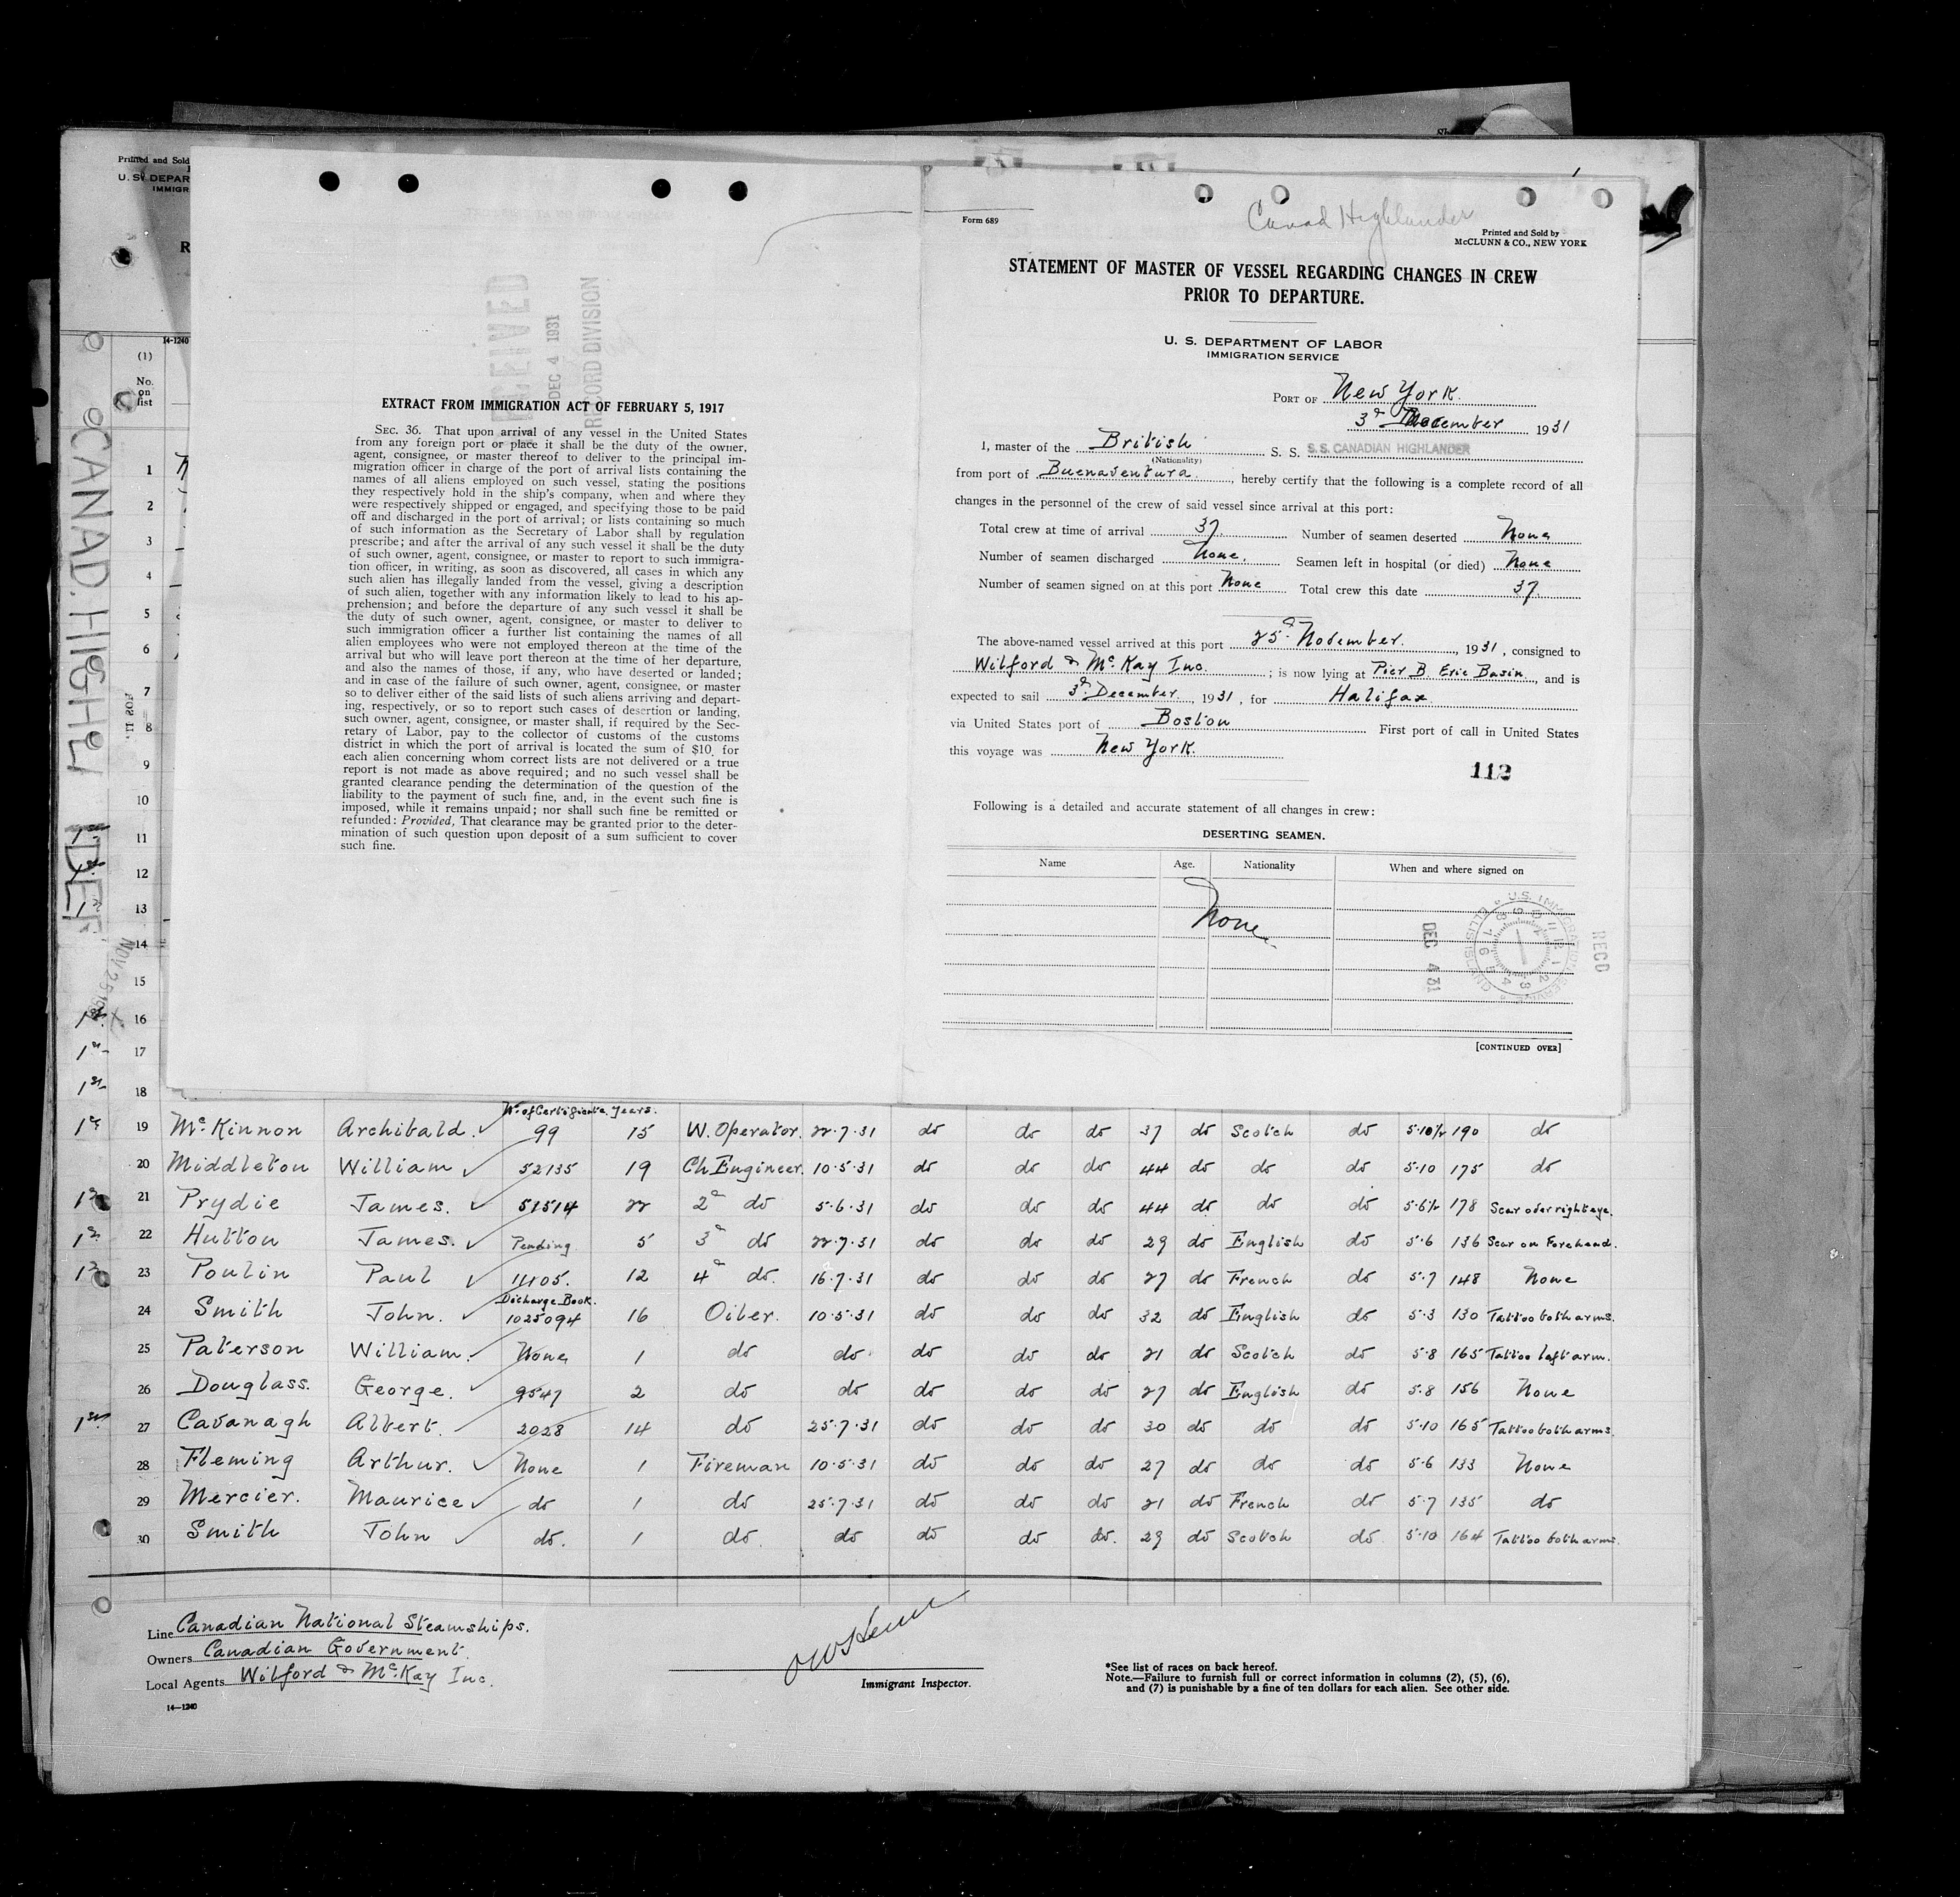 Printed and Sold
U. S. DEPAR
IMMIGR
R
14-1240
(1)
No.
on
list
CANAD. HIGHL
DEF
NOV 25 1931
1
2
3
4
5
6
7
8
9
10
11
12
13
14
15
16
17
18
RECEIVED
DEC 4 1931
RECORD DIVISION
EXTRACT FROM IMMIGRATION ACT OF FEBRUARY 5, 1917
SEC. 36. That upon arrival of any vessel in the United States
from any foreign port or place it shall be the duty of the owner,
agent, consignee, or master thereof to deliver to the principal im-
migration officer in charge of the port of arrival lists containing the
names of all aliens employed on such vessel, stating the positions
they respectively hold in the ship's company, when and where they
were respectively shipped or engaged, and specifying those to be paid
off and discharged in the port of arrival; or lists containing so much
of such information as the Secretary of Labor shall by regulation
prescribe; and after the arrival of any such vessel it shall be the duty
of such owner, agent, consignee, or master to report to such immigra-
tion officer, in writing, as soon as discovered, all cases in which any
such alien has illegally landed from the vessel, giving a description
of such alien, together with any information likely to lead to his ap-
prehension; and before the departure of any such vessel it shall be
the duty of such owner, agent, consignee, or master to deliver to
such immigration officer a further list containing the names of all
alien employees who were not employed thereon at the time of the
arrival but who will leave port thereon at the time of her departure,
and also the names of those, if any, who have deserted or landed;
and in case of the failure of such owner, agent, consignee, or master
so to deliver either of the said lists of such aliens arriving and depart-
ing, respectively, or so to report such cases of desertion or landing,
such owner, agent, consignee, or master shall, if required by the Sec-
retary of Labor, pay to the collector of customs of the customs
district in which the port of arrival is located the sum of $10 for
each alien concerning whom correct lists are not delivered or a true
report is not made as above required; and no such vessel shall be
granted clearance pending the determination of the question of the
liability to the payment of such fine, and, in the event such fine is
imposed, while it remains unpaid; nor shall such fine be remitted or
refunded: Provided, That clearance may be granted prior to the deter-
mination of such question upon deposit of a sum sufficient to cover
such fine.
Form 689
Canad Highlander
Printed and Sold by
McCLUNN & CO., NEW YORK
STATEMENT OF MASTER OF VESSEL REGARDING CHANGES IN CREW
PRIOR TO DEPARTURE.
U. S. DEPARTMENT OF LABOR
IMMIGRATION SERVICE
PORT OF New York.
3d December 1931
I, master of the British S. S. S.S. CANADIAN HIGHLANDER
(Nationality)
from port of Buenaventura, hereby certify that the following is a complete record of all
changes in the personnel of the crew of said vessel since arrival at this port:
Total crew at time of arrival 37. Number of seamen deserted None
Number of seamen discharged None. Seamen left in hospital (or died) None
Number of seamen signed on at this port None Total crew this date 37.
The above-named vessel arrived at this port 25th November., 1931, consigned to
Wilford & McKay Inc.; is now lying at Pier B. Erie Basin, and is
expected to sail 3d December, 1931, for Halifax
via United States port of Boston First port of call in United States
this voyage was New York.
112
Following is a detailed and accurate statement of all changes in crew:
DESERTING SEAMEN.
Name Age. Nationality When and where signed on
None
DEC 4 31
RECD
[CONTINUED OVER]
No. of Certificate. Years.
19 McKinnon Archibald. 99 15 W. Operator. 22.7.31 do do do 37 do Scotch do 5.10½ 190 do
20 Middleton William 52135 19 Ch Engineer. 10.5.31 do do do 44 do do do 5.10 175 do
21 Prydie James. 51514 22 2d do 5.6.31 do do do 44 do do do 5.6½ 178 Scar over right eye.
22 Hutton James. Pending 5 3d do 22.7.31 do do do 29 do English do 5.6 136 Scar on Forehead.
23 Poulin Paul 11105. 12 4th do. 16.7.31 do do do 27 do French do 5.7 148 None
Discharge Book.
24 Smith John. 1025094 16 Oiler. 10.5.31 do do do 32 do English do 5.3 130 Tattoo both arms.
25 Paterson William. None 1 do do do do do 21 do Scotch do 5.8 165 Tattoo left arm.
26 Douglass. George. 9547 2 do do do do do 27 do English do 5.8 156 None
27 Cavanagh Albert. 2028 14 do 25.7.31 do do do 30 do do do 5.10 165 Tattoo both arms
28 Fleming Arthur. None 1 Fireman 10.5.31 do do do 27 do do do 5.6 133 None
29 Mercier. Maurice do 1 do 25.7.31 do do do 21 do French do 5.7 135 do
30 Smith John do. 1 do. do do do do. 29 do Scotch do 5.10 164 Tattoo both arms
Line Canadian National Steamships.
Owners Canadian Government.
Local Agents Wilford & McKay Inc.
14-1240
Immigrant Inspector.
*See list of races on back hereof.
Note.—Failure to furnish full or correct information in columns (2), (5), (6),
and (7) is punishable by a fine of ten dollars for each alien. See other side.